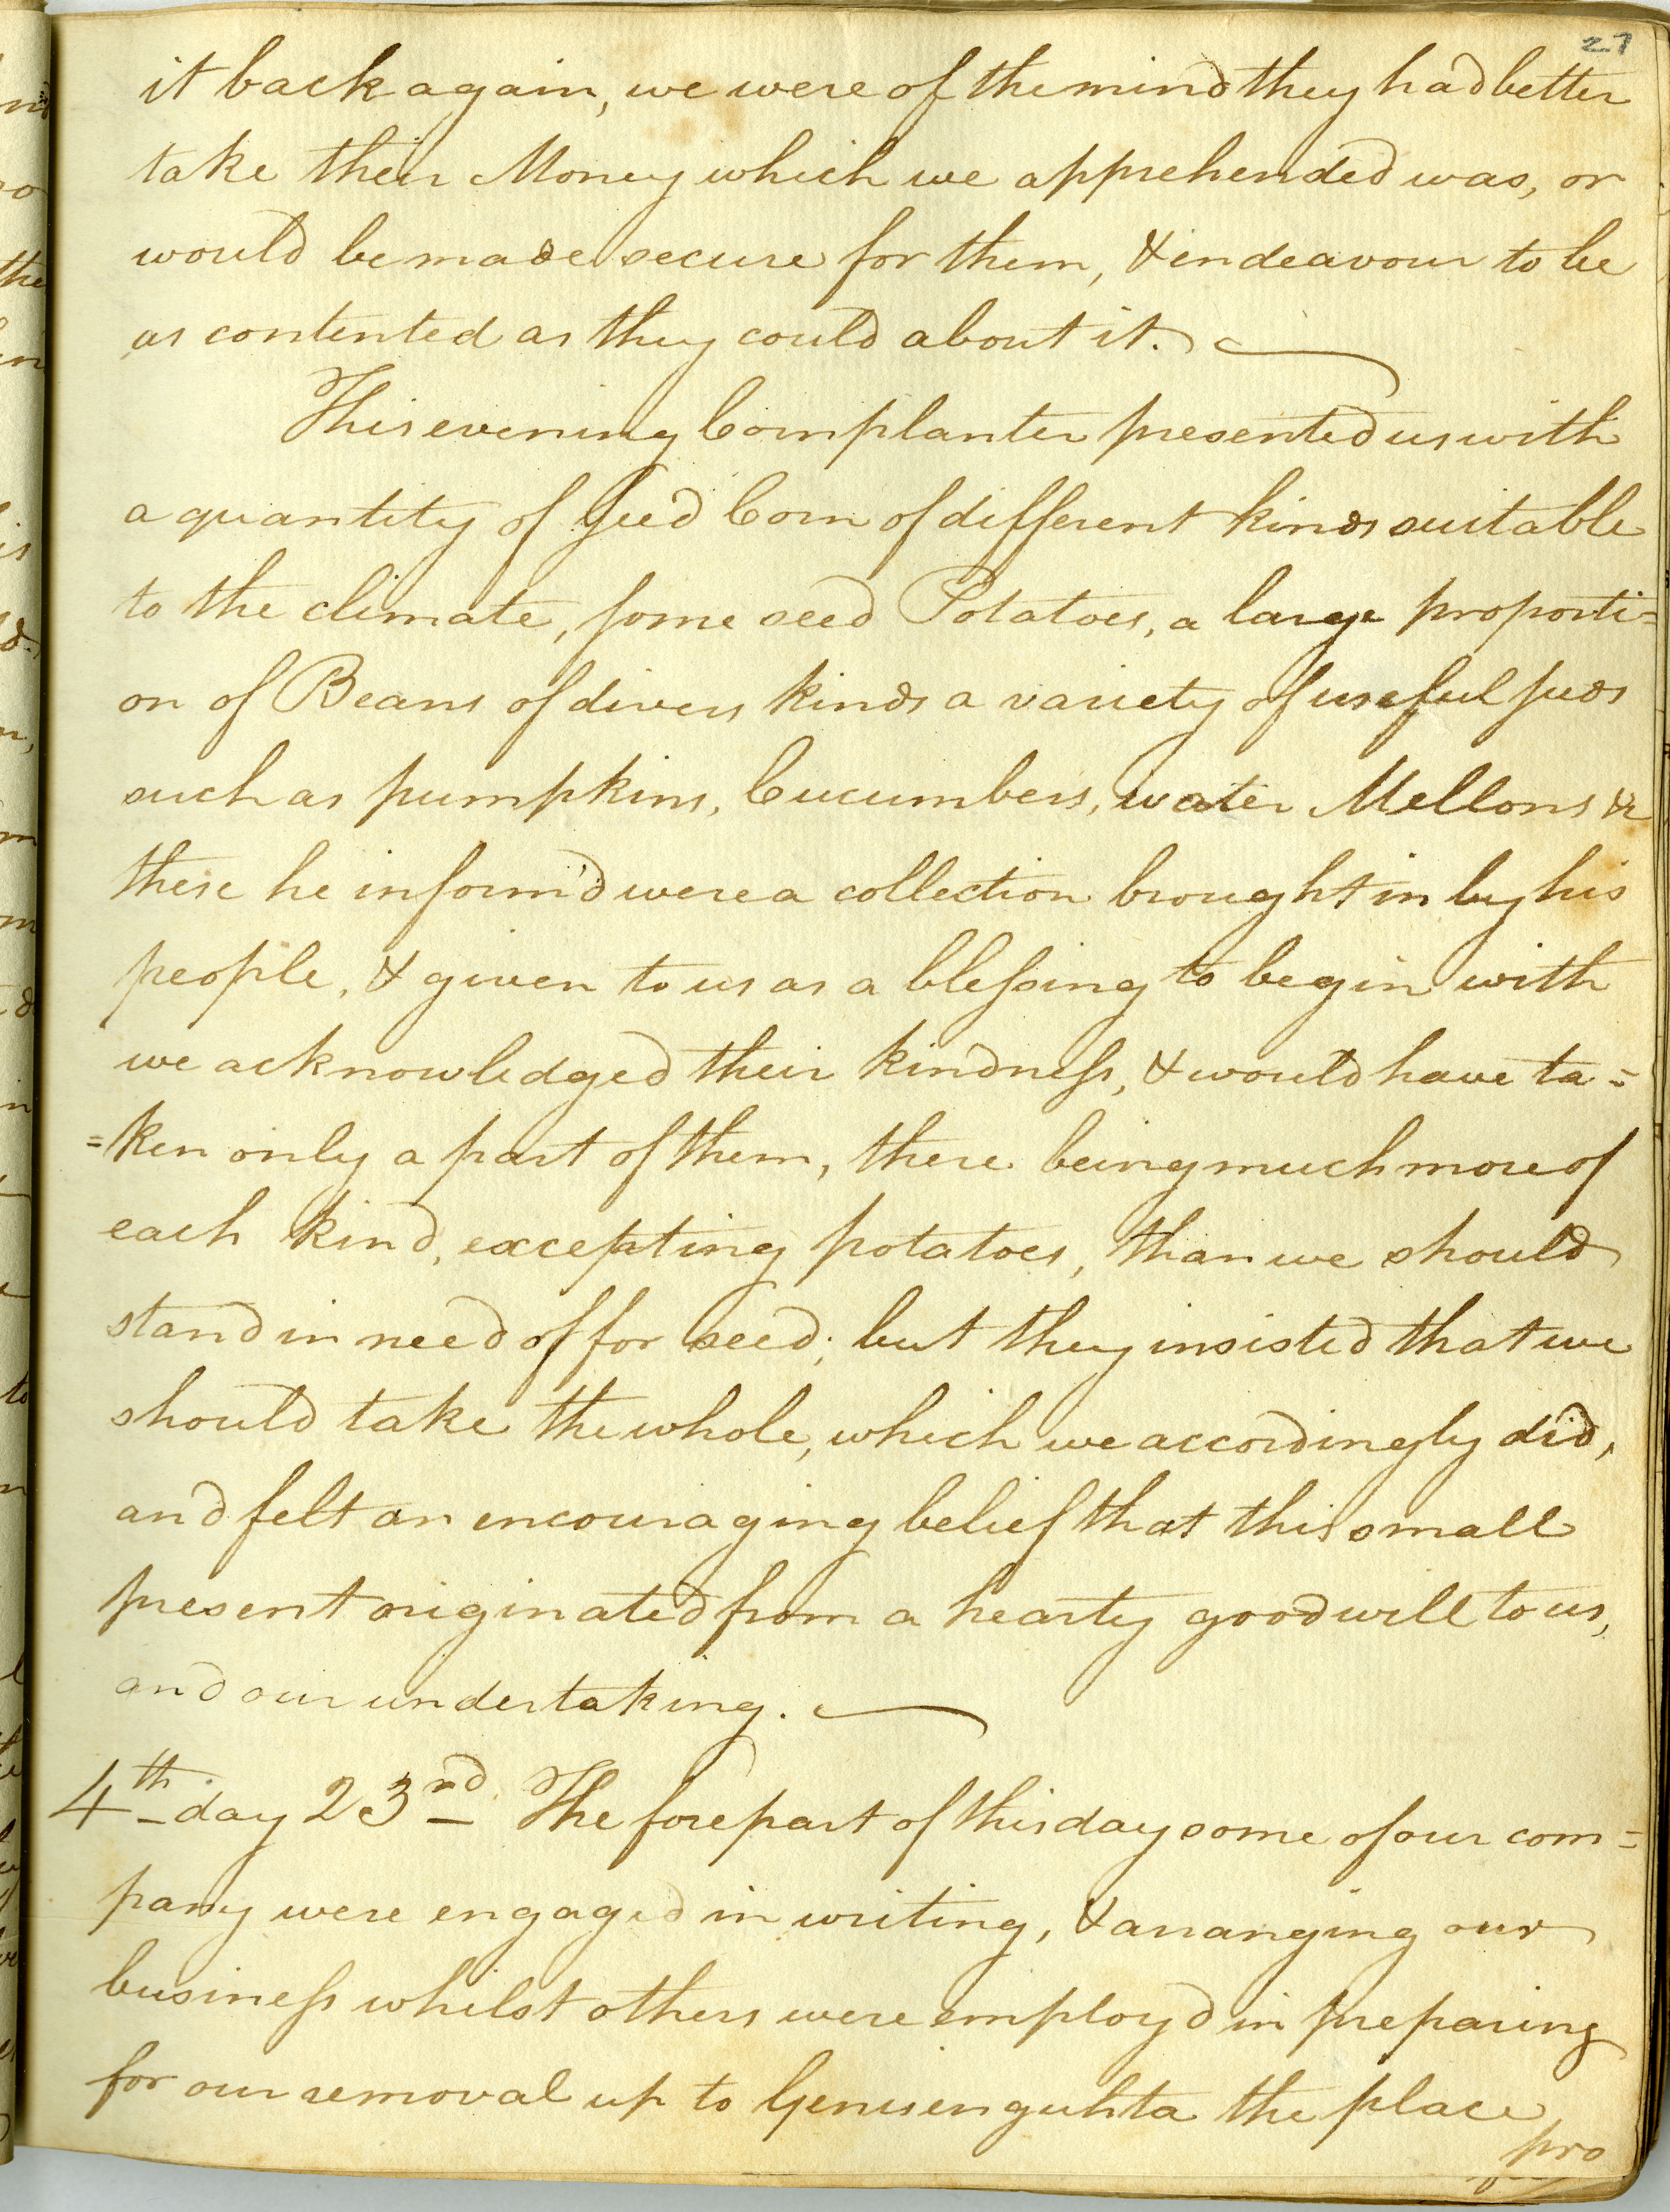 27
it back again, we were of the mind they had better
take their Money which we apprehended was, or
would be made secure for them, & indeavour to be
as contented as they could about it.
This evening Cornplanter presented us with
a quantity of Seed Corn of different kinds suitable
to the climate, some seed Potatoes, a large proporti=
on of Beans of divers kinds a variety of useful seeds
such as pumpkins, Cucumbers, water Mellons &c
these he inform'd were a collection brought in by his
people, & given to us as a blessing to begin with
we acknowledged their kindness, & would have ta=
=ken only a part of them, there being much more of
each kind, excepting potatoes, than we should
stand in need of for seed; but they insisted that we
should take the whole, which we accordingly did,
and felt an encouraging belief that this small
present originated from a hearty good will to us,
and our undertaking.
4th day 23rd The forepart of this day some of our com=
pany were engaged in writing, & arranging our
business whilst others were employ'd in preparing
for our removal up to Genesenguhta the place
pro